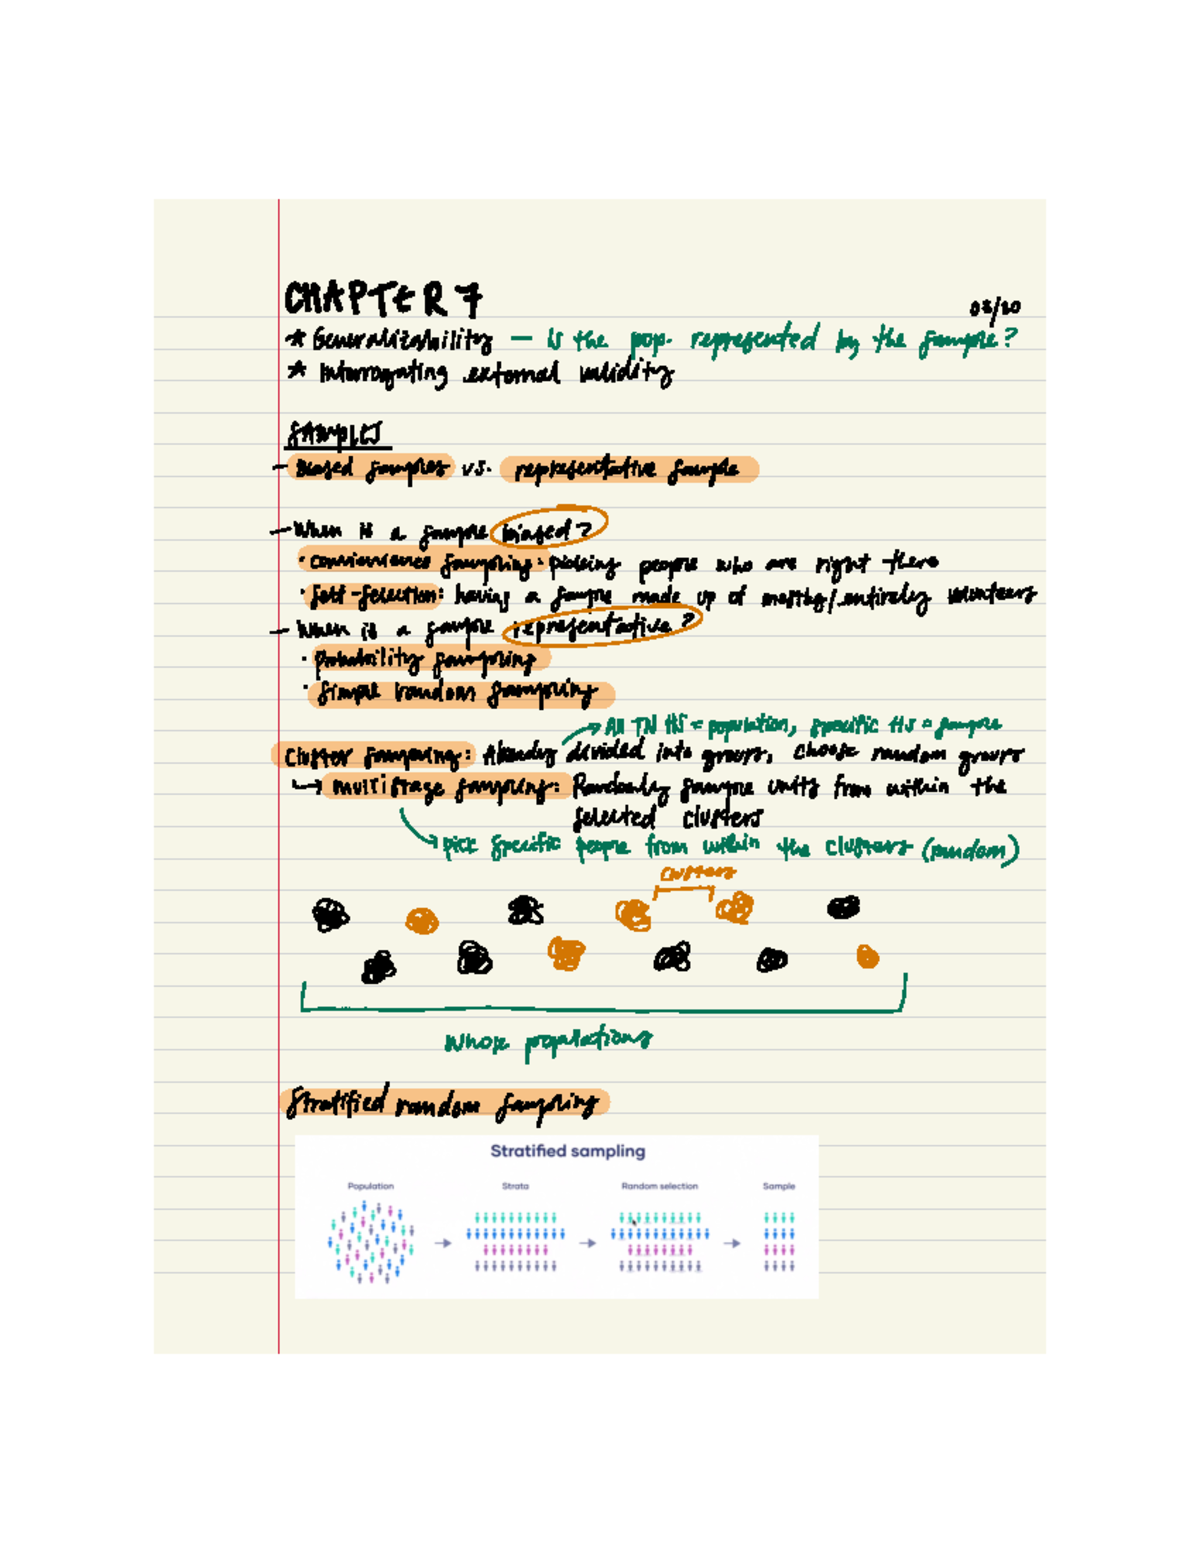 CHAPTER 7
03/20
* Generalizability — Is the pop. represented by the sample?
* Interrogating external validity
SAMPLES
— Biased samples vs. representative sample
— When is a sample biased?
• convienience sampling: picking people who are right there
• Self-selection: having a sample made up of mostly/entirely volunteers
— When is a sample representative?
• Probability sampling
• Simple random sampling
→ All TN HS = population, specific HS = sample
Cluster sampling: Already divided into groups, choose random groups
↳ Multistage sampling: Randomly sample units from within the
selected clusters
↳ pick specific people from within the clusters (random)
clusters
Whole populations
Stratified random sampling
Stratified sampling
Population Strata Random selection Sample